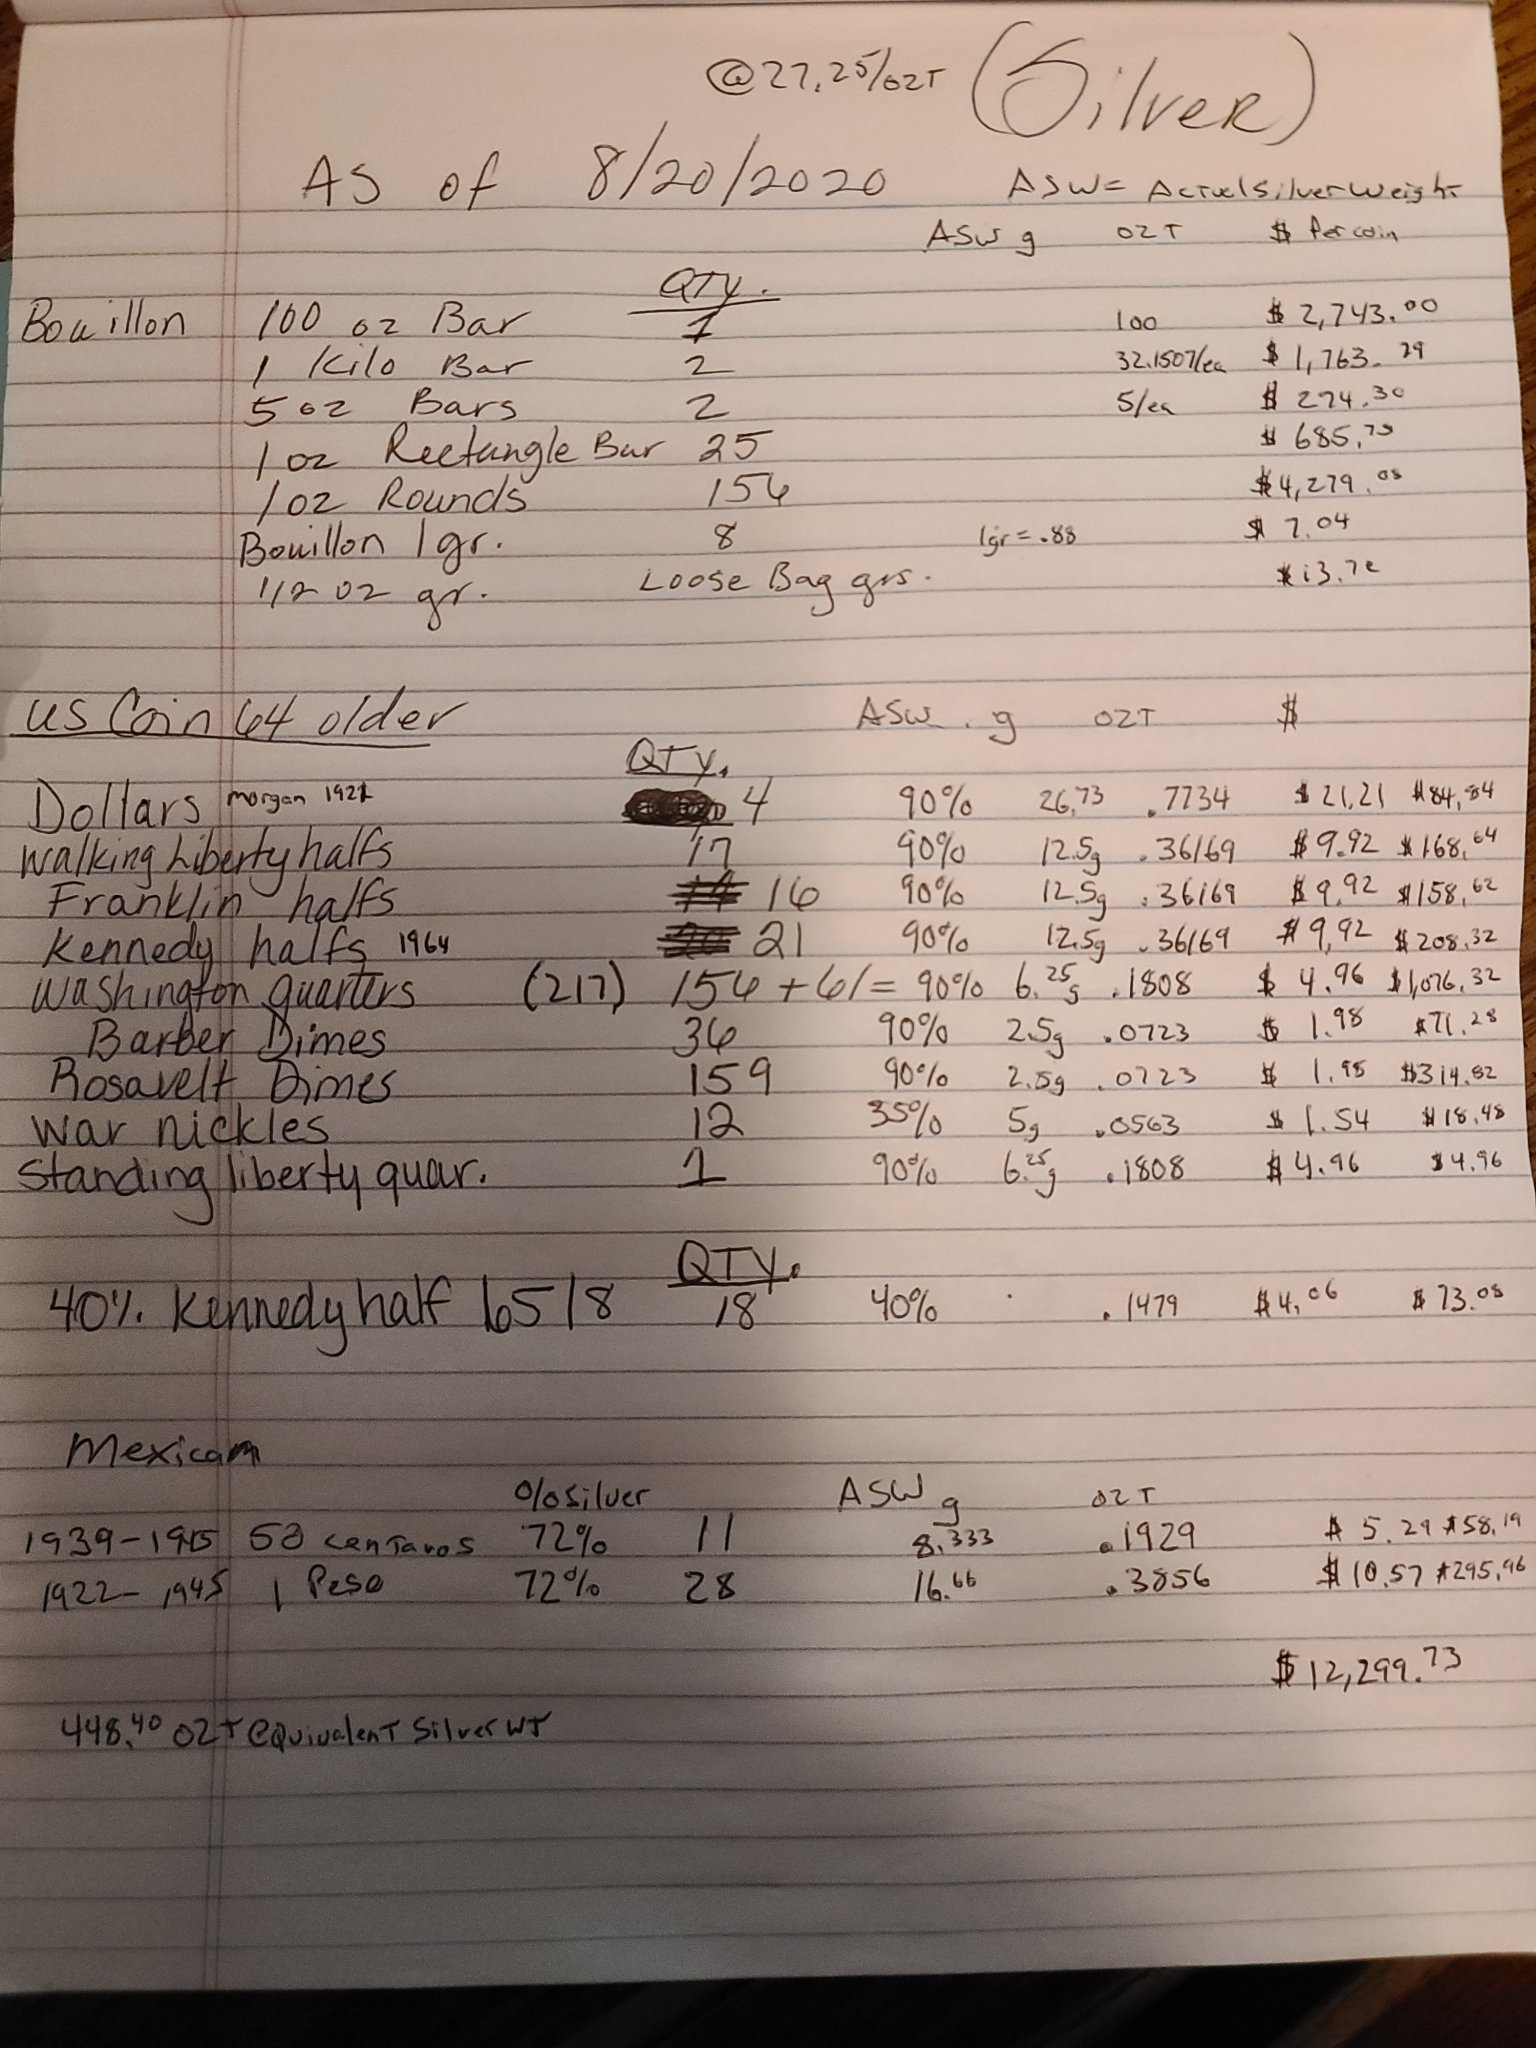 @27.25/OZT (Silver)
AS of 8/20/2020 ASW= Actual Silver Weight
ASW g OZT $ Per coin
QTY.
Bouillon 100 oz Bar 1 100 $ 2,743.00
1 Kilo Bar 2 32.1507/ea $ 1,763.29
5 oz Bars 2 5/ea $ 274.30
1 oz Rectangle Bar 25 $ 685.75
1 oz Rounds 156 $4,279.08
Bouillon 1gr. 8 1gr = .88 $ 7.04
1/2 oz gr. Loose Bag grs. $13.72
US Coin 64 older ASW. g OZT $
QTY.
Dollars morgan 1921 4 90% 26.73 .7734 $ 21.21 $84.84
Walking Liberty halfs 17 90% 12.5g .36169 $ 9.92 $168.64
Franklin halfs 16 90% 12.5g .36169 $ 9.92 $158.62
Kennedy halfs 1964 21 90% 12.5g .36169 $ 9,92 $208.32
Washington quarters (217) 156 + 61 = 90% 6.25g .1808 $ 4.96 $1,076.32
Barber Dimes 36 90% 2.5g .0723 $ 1.98 $71.28
Rosavelt Dimes 159 90% 2.5g .0723 $ 1.98 $314.82
War nickles 12 35% 5g .0563 $ 1.54 $18.48
Standing liberty quar. 1 90% 6.25g .1808 $ 4.96 $4.96
QTY.
40% Kennedy half 65 18 18 40% .1479 $4.06 $ 73.08
Mexican
% Silver ASW g OZT
1939-1945 50 centavos 72% 11 8.333 .1929 $ 5.29 $58.19
1922-1945 1 Peso 72% 28 16.66 .3856 $ 10.57 $295.96
$ 12,299.73
448.40 OZT equivalent Silver WT